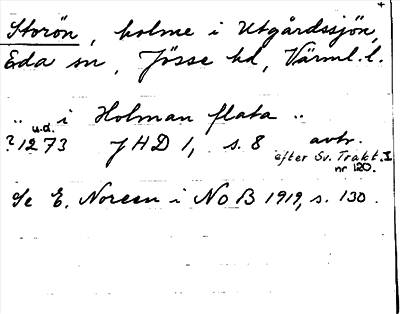 Storön, holme i Utgårdssjön,
Eda sn, Jösse hd, Värml. l.
„ i Holman flata „
u.d.
? 1273 J H D 1, s. 8 avtr.
efter Sv. Trakt. I
nr 120.
Se E. Noreen i NoB 1919, s. 130.